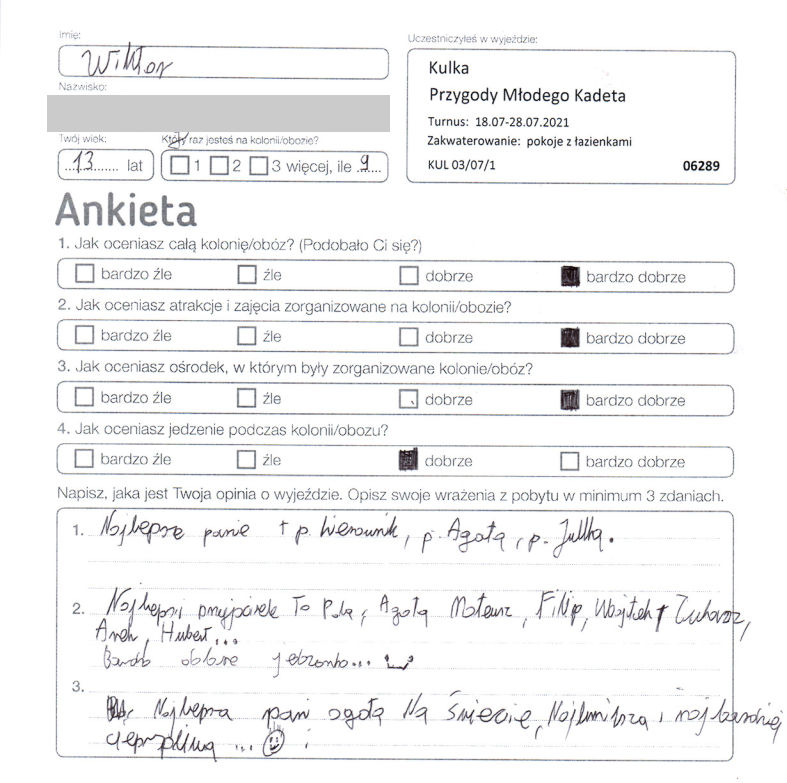 Imię:
Wiktor
Nazwisko:
Twój wiek:
Który raz jesteś na kolonii/obozie?
13 lat
1 2 3 więcej, ile 9
Uczestniczyłeś w wyjeździe:
Kulka
Przygody Młodego Kadeta
Turnus: 18.07-28.07.2021
Zakwaterowanie: pokoje z łazienkami
KUL 03/07/1 06289
Ankieta
1. Jak oceniasz całą kolonię/obóz? (Podobało Ci się?)
bardzo źle źle dobrze bardzo dobrze
2. Jak oceniasz atrakcje i zajęcia zorganizowane na kolonii/obozie?
bardzo źle źle dobrze bardzo dobrze
3. Jak oceniasz ośrodek, w którym były zorganizowane kolonie/obóz?
bardzo źle źle dobrze bardzo dobrze
4. Jak oceniasz jedzenie podczas kolonii/obozu?
bardzo źle źle dobrze bardzo dobrze
Napisz, jaka jest Twoja opinia o wyjeździe. Opisz swoje wrażenia z pobytu w minimum 3 zdaniach.
1. Najlepsze panie + p. kierownik, p. Agata, p. Julka.
2. Najlepsi To Agata Mateusz, Filip, Wojtek
Hubert...
Bardzo dobre jedzonko...
3. Najlepsza pani agata Na świecie, Najmilsza i najbardziej
cierpliwa ...